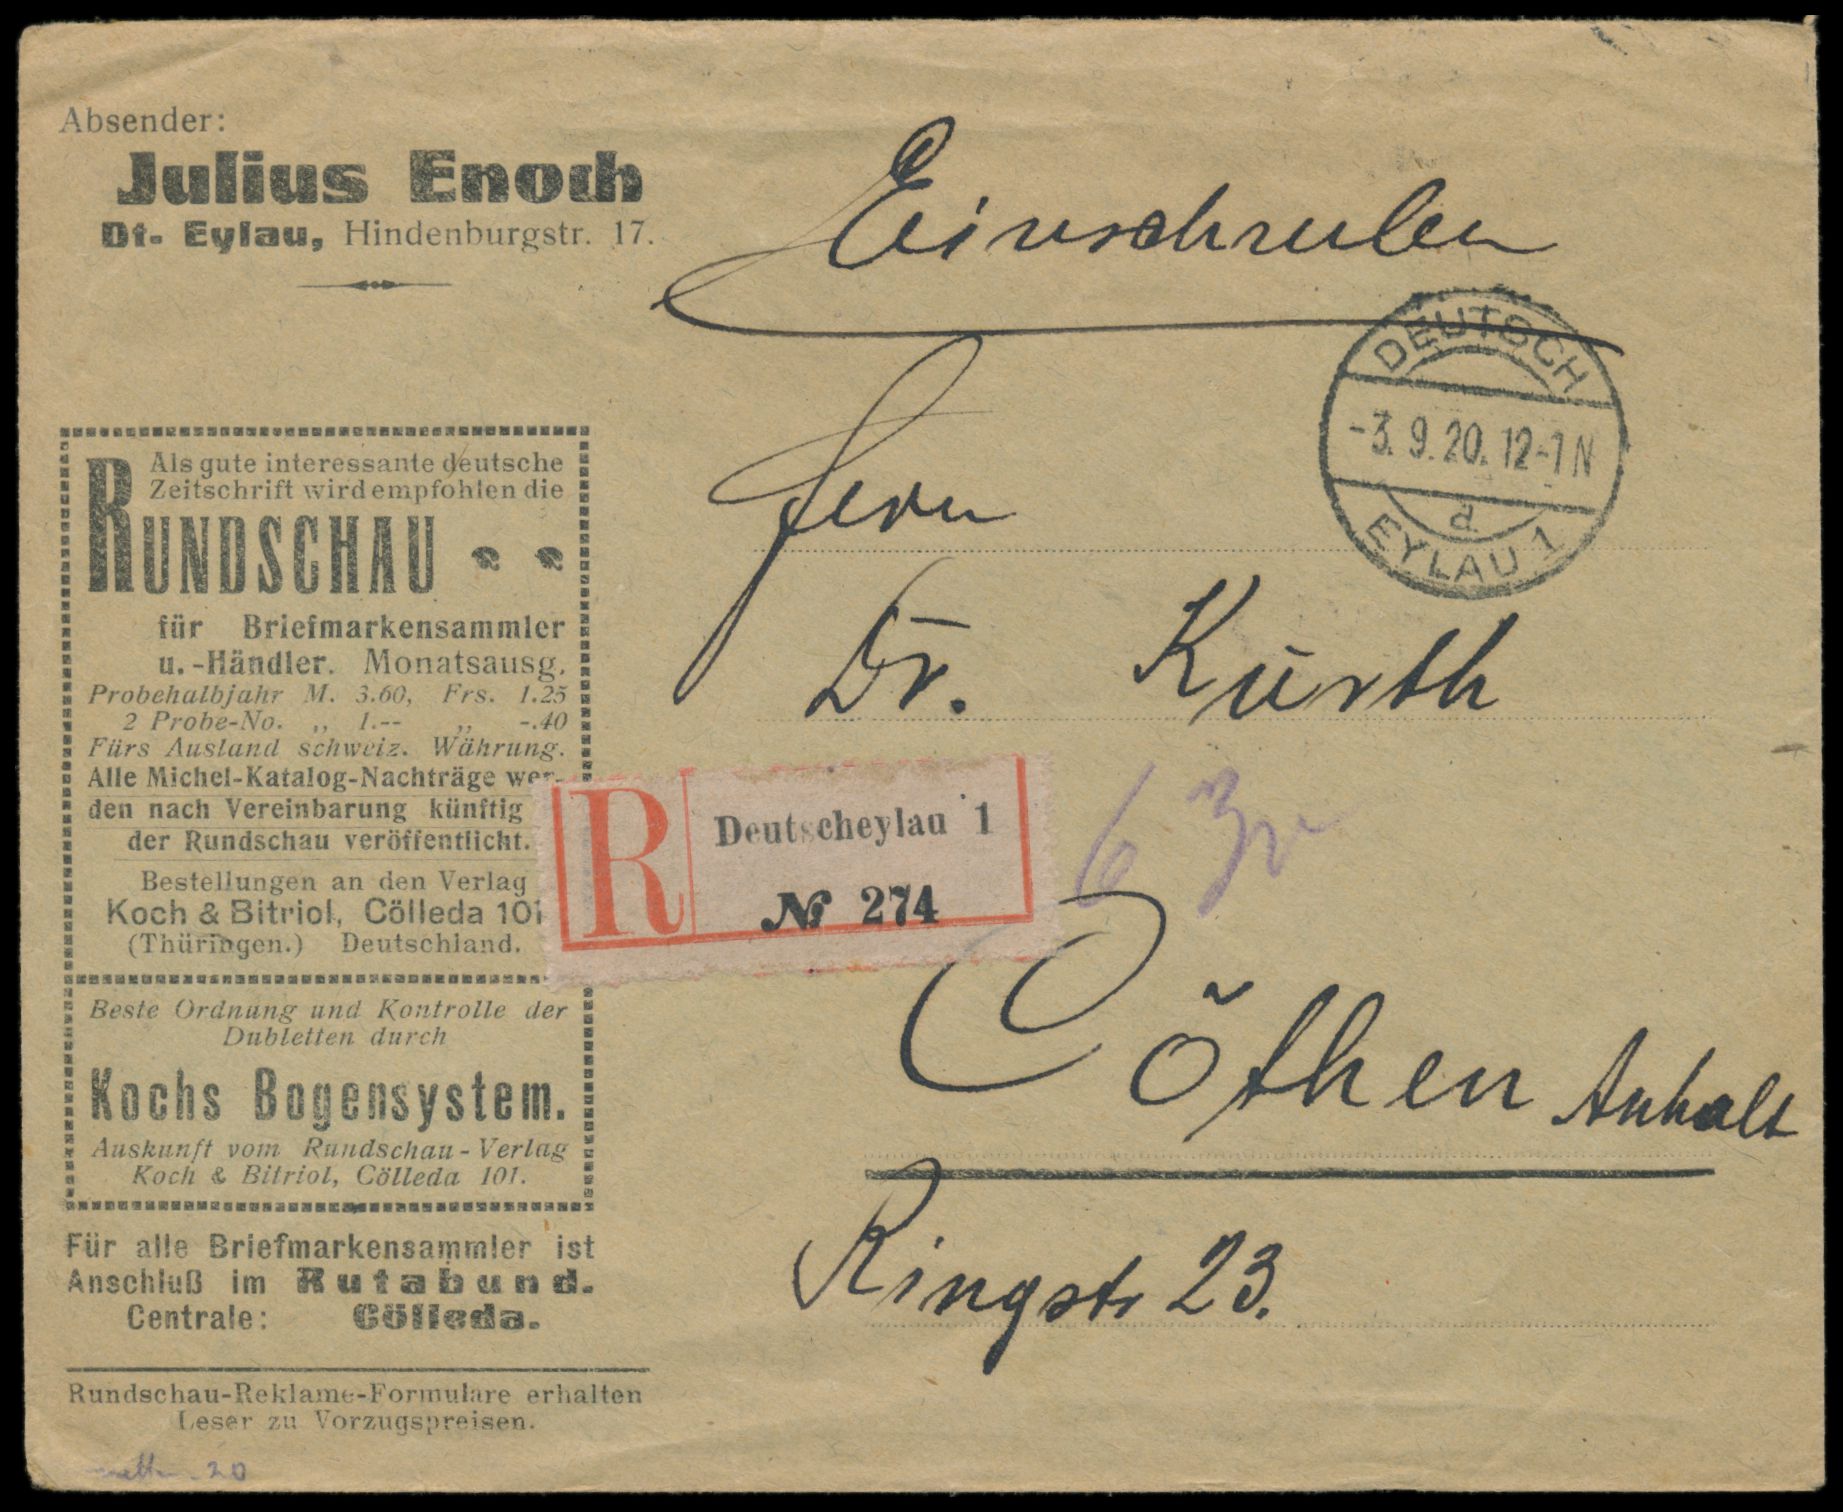 Absender:
Julius Enoch
Dt.- Eylau, Hindenburgstr. 17.
Einschreiben
DEUTSCH
-3.9.20.12-1N
d
EYLAU 1
Als gute interessante deutsche
Zeitschrift wird empfohlen die
RUNDSCHAU
für Briefmarkensammler
u.-Händler. Monatsausg.
Probehalbjahr M. 3.60, Frs. 1.25
2 Probe-No. „ 1.-- „ -.40
Fürs Ausland schweiz. Währung.
Alle Michel-Katalog-Nachträge wer-
den nach Vereinbarung künftig
der Rundschau veröffentlicht.
Bestellungen an den Verlag
Koch & Bitriol, Cölleda 101
(Thüringen.) Deutschland.
Beste Ordnung und Kontrolle der
Dubletten durch
Kochs Bogensystem.
Auskunft vom Rundschau-Verlag
Koch & Bitriol, Cölleda 101.
Für alle Briefmarkensammler ist
Anschluß im Rutabund.
Centrale: Cölleda.
Rundschau-Reklame-Formulare erhalten
Leser zu Vorzugspreisen.
Herrn
Dr. Kurth
R
Deutscheylau 1
№ 274
Cöthen Anhalt
Ringstr 23.